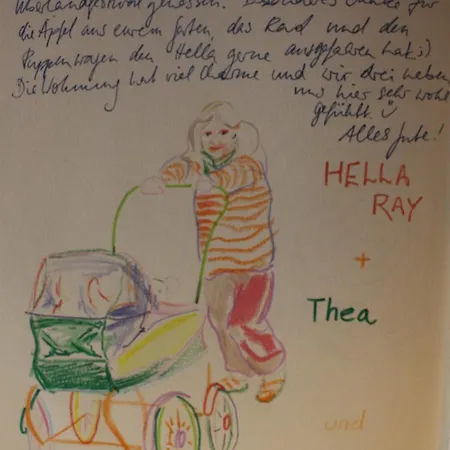 genossen. Besonderen Danke für
die Äpfel aus eurem Garten, das Rad und den
Puppenwagen den Hella gerne ausgefahren hat :)
Die Wohnung hat viel Charme und wir drei haben
uns hier sehr wohl
gefühlt.
Alles Gute!
HELLA
RAY
+
Thea
und